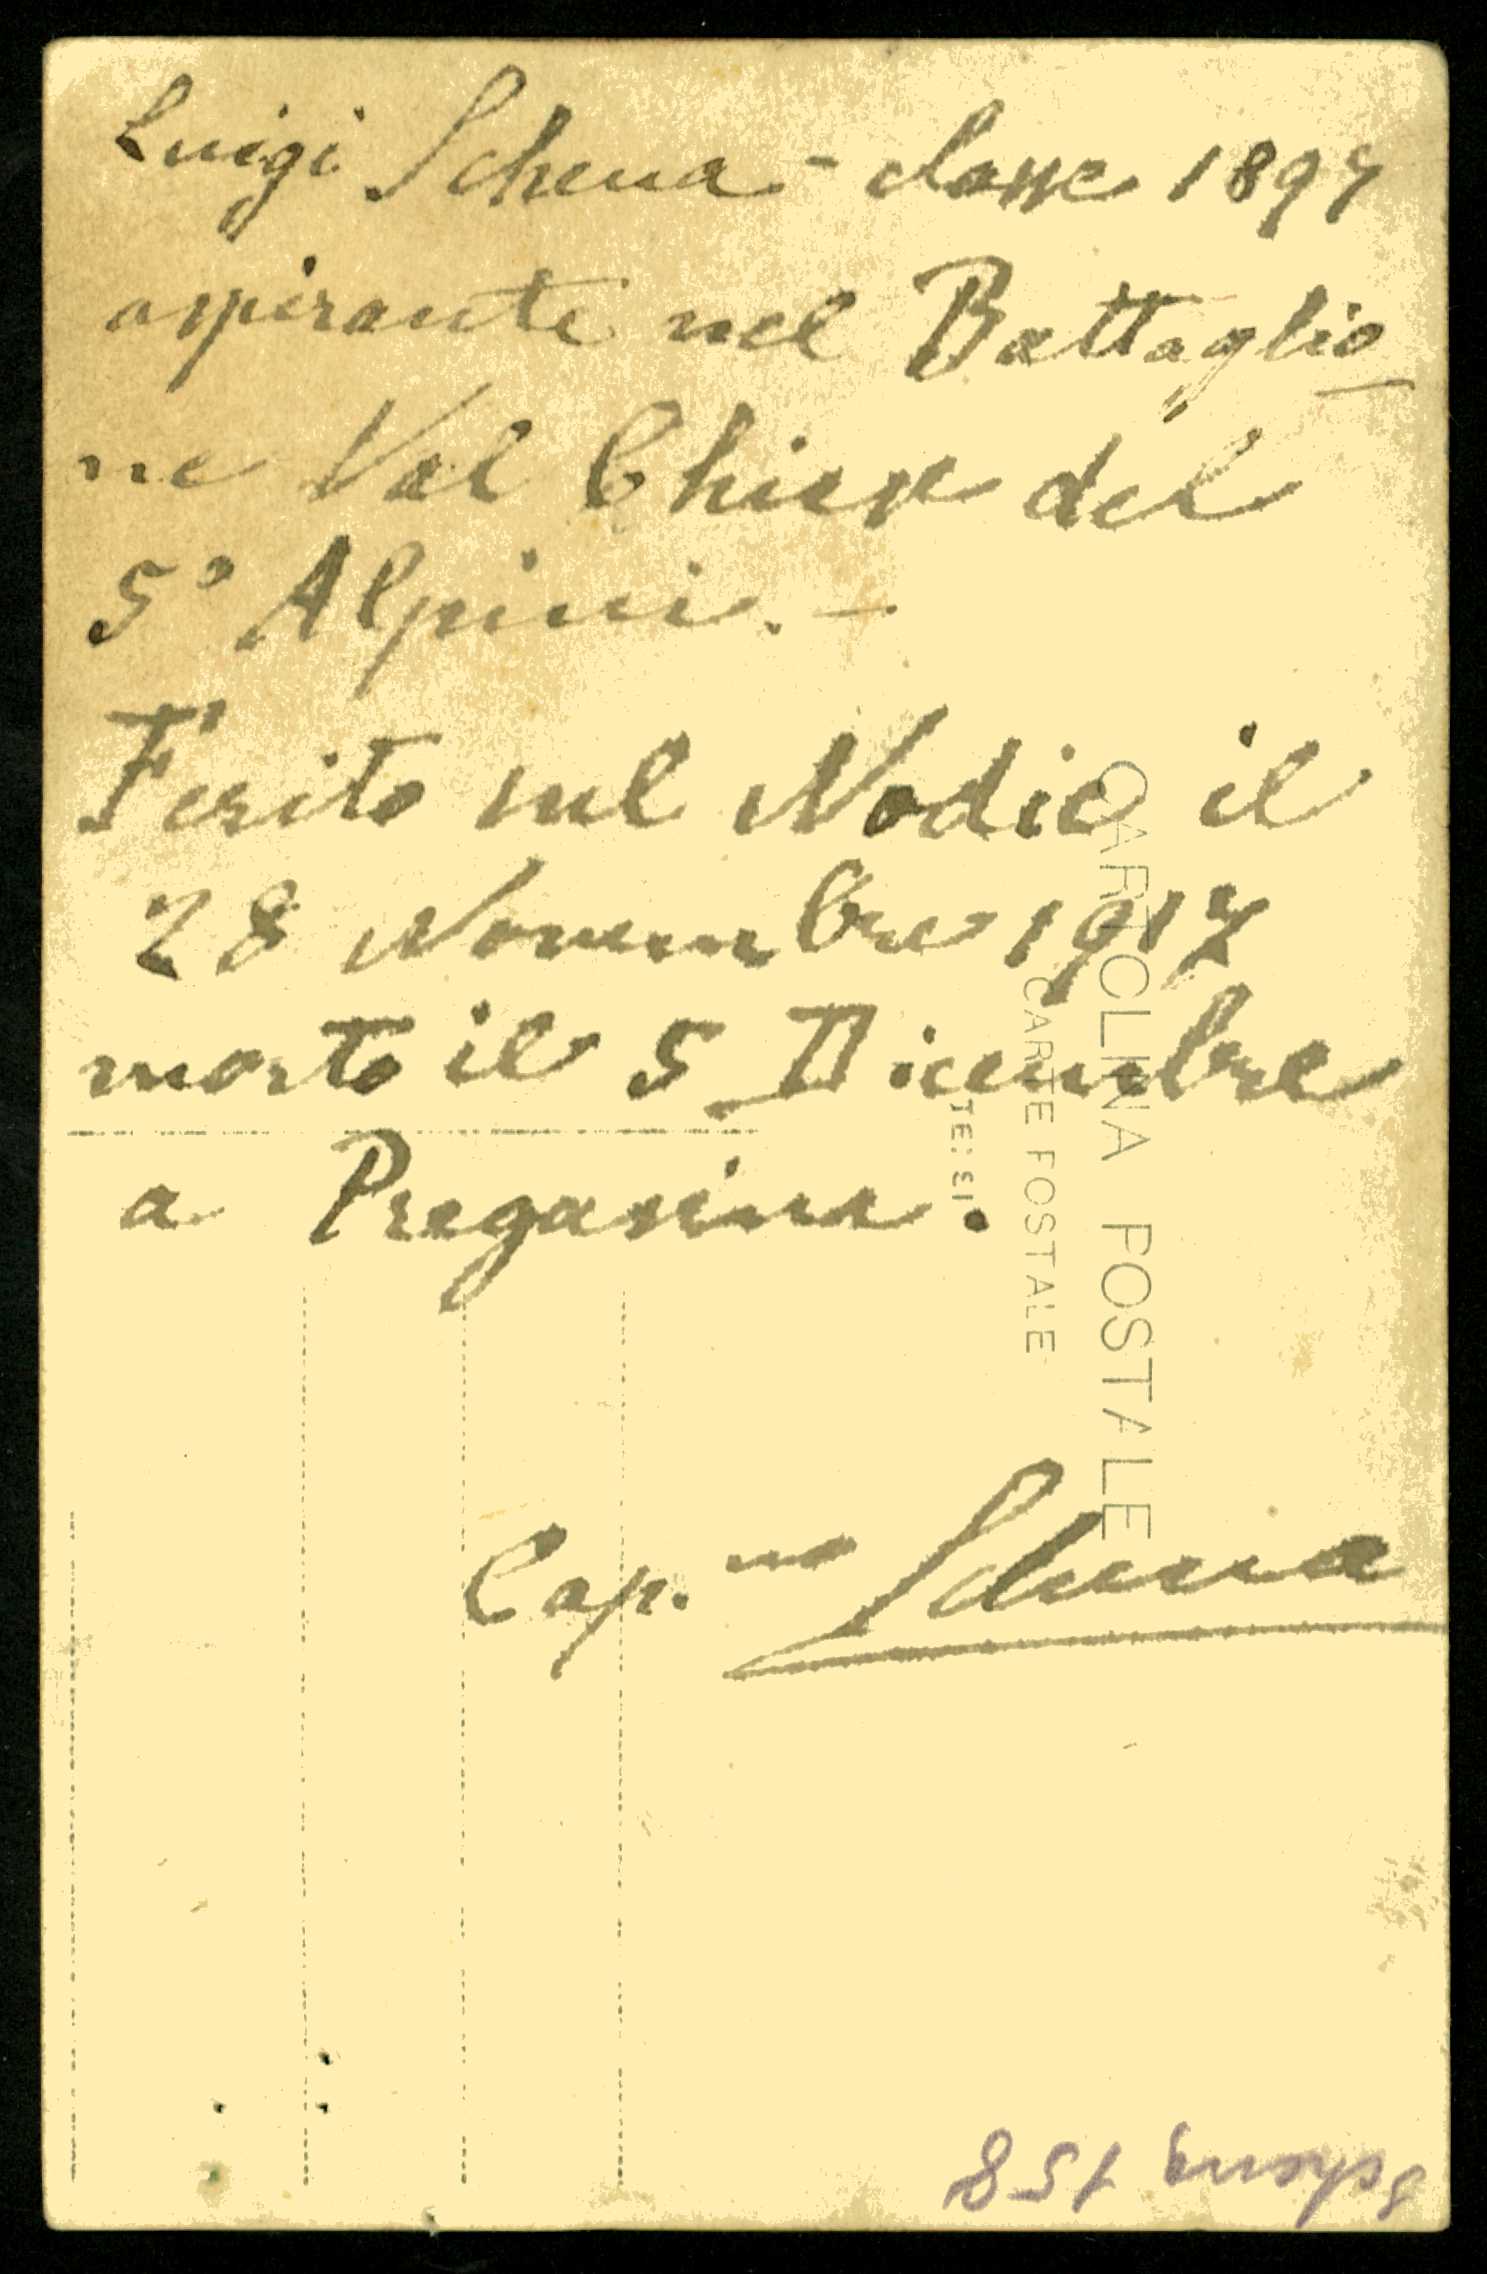 Luigi Schena - classe 1897
aspirante nel Battaglio
ne Val Chiese del
5° Alpini. -
Ferito sul Nodic il
28 Novembre 1917
morto il 5 Dicembre
a Pregasina.
Cap.no Schena
CARTOLINA POSTALE
CARTE POSTALE
Schena 158